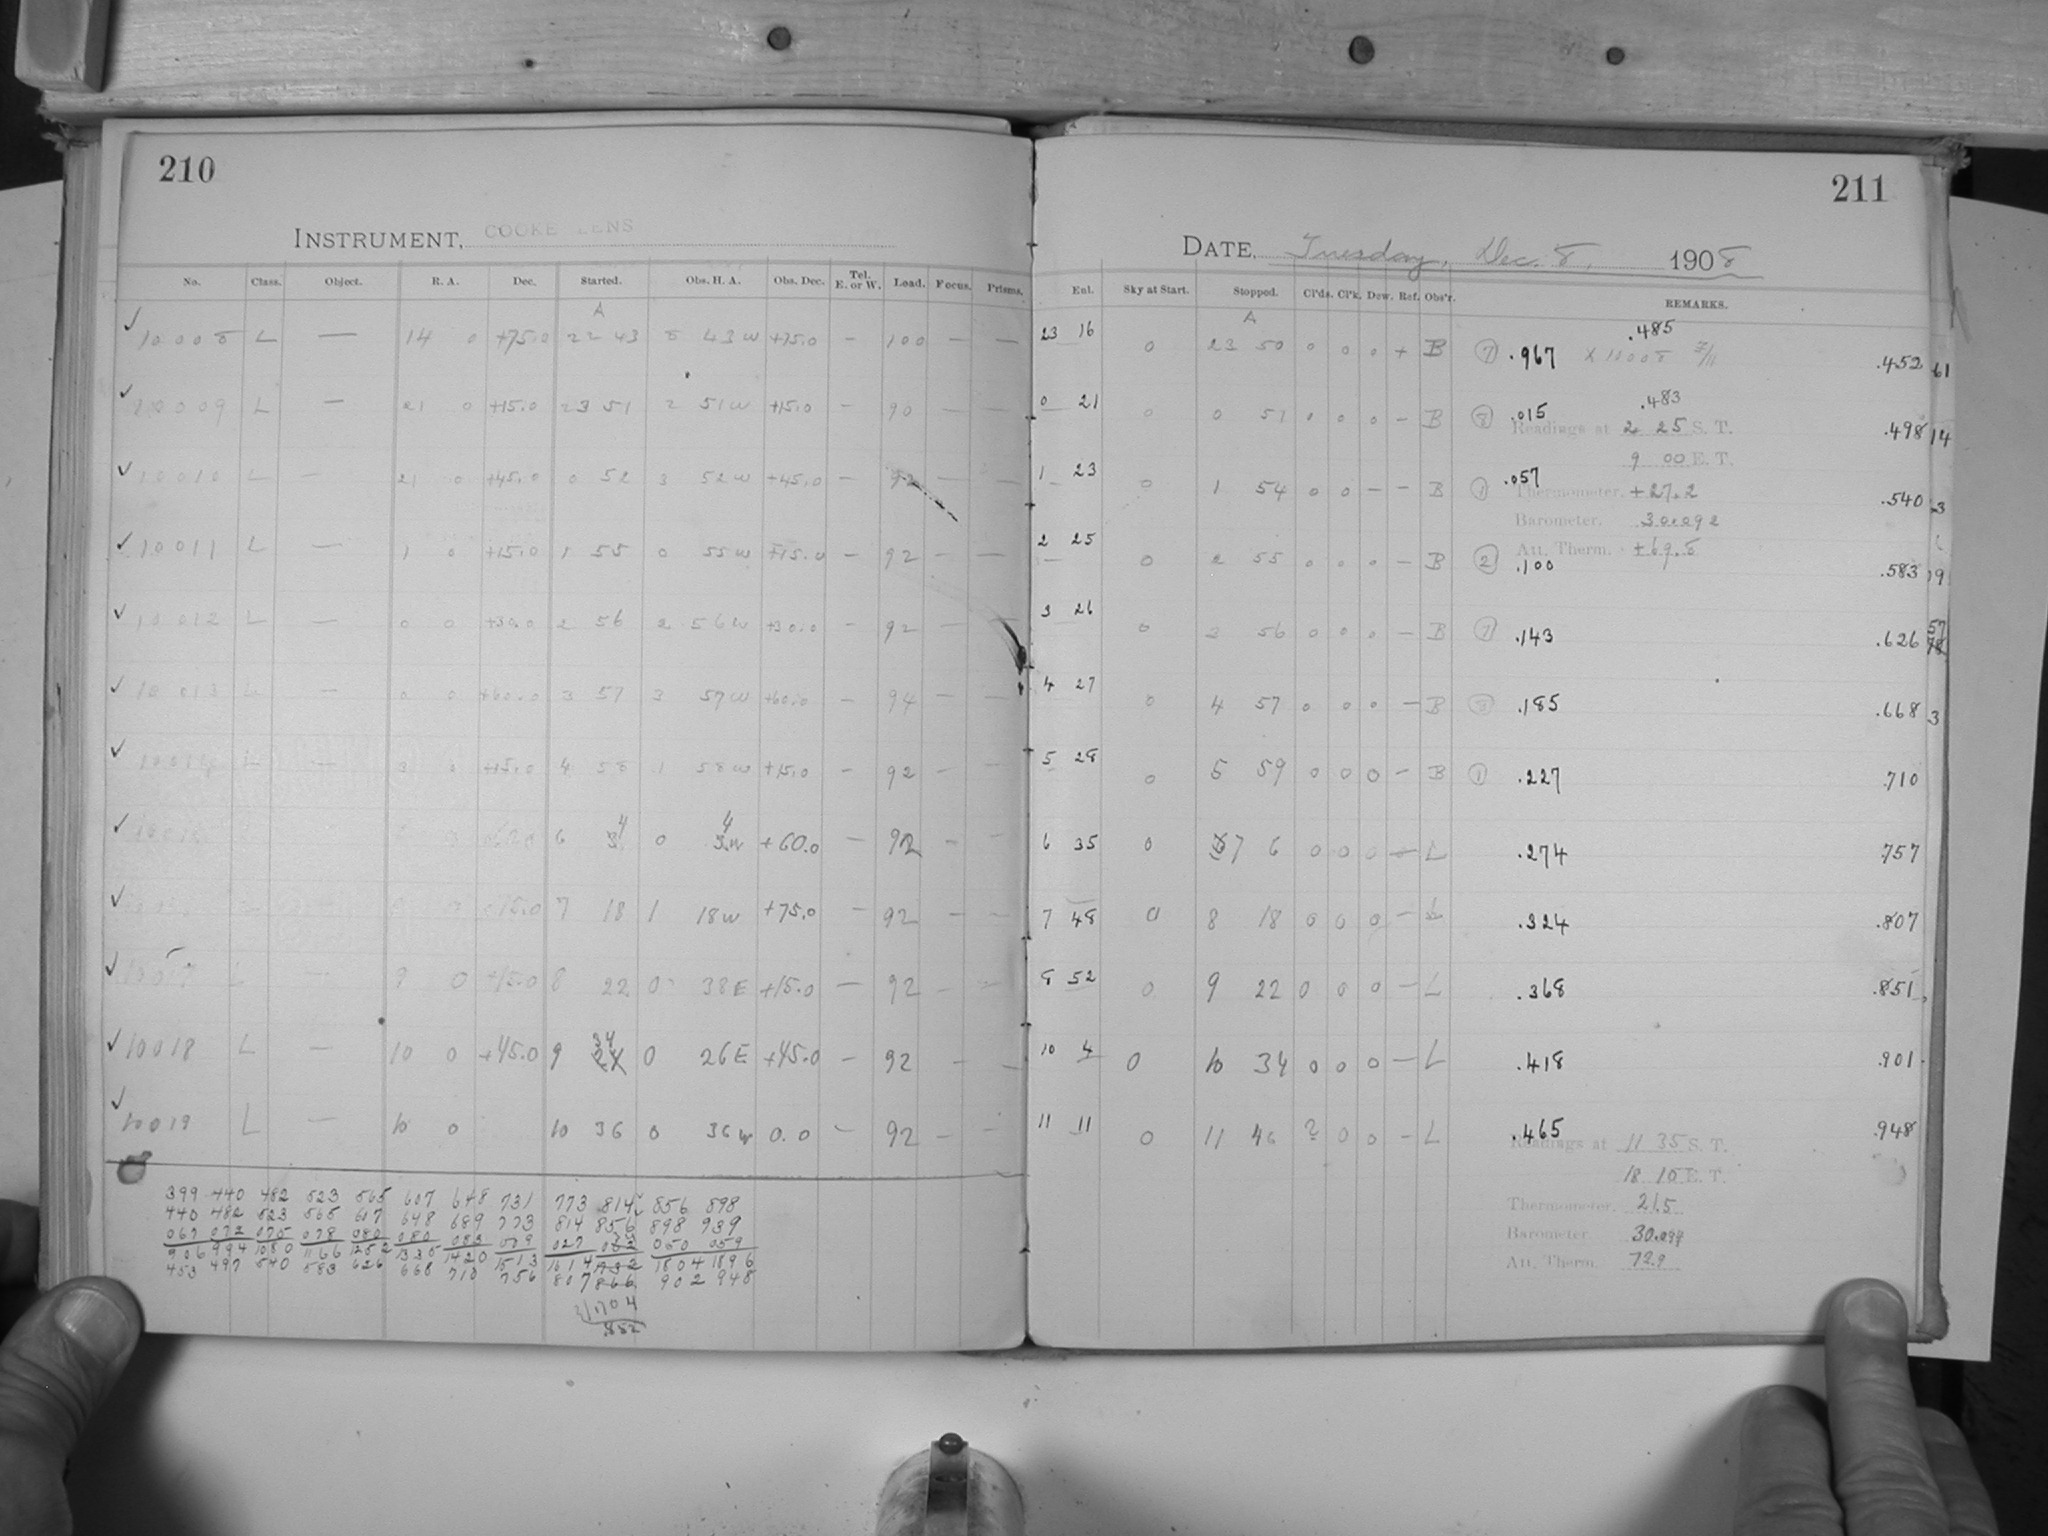 210
INSTRUMENT, COOKE LENS
No. Class. Object. R. A. Dec. Started. Obs. H. A. Obs. Dec. Tel. E. or W. Load. Focus. Prisms.
A
✓ 10008 L — 14 0 +75.0 22 43 8 43 W +75.0 — 100 — —
✓ 10009 L — 21 0 +15.0 23 51 2 51 W +15.0 — 90 — —
✓ 10010 L — 21 0 +45.0 0 52 3 52 W +45.0 — 92 — —
✓ 10011 L — 1 0 +15.0 1 55 0 55 W +15.0 — 92 — —
✓ 10012 L — 0 0 +30.0 2 56 2 56 W +30.0 — 92 — —
✓ 10013 L — 0 0 +60.0 3 57 3 57 W +60.0 — 94 — —
✓ 10014 L — 3 0 +15.0 4 58 1 58 W +15.0 — 92 — —
✓ 6 4 0 4 W +60.0 — 92 — —
✓ +75.0 7 18 1 18 W +75.0 — 92 — —
✓ 10017 L — 9 0 +15.0 8 22 0 38 E +15.0 — 92 — —
✓ 10018 L — 10 0 +45.0 9 34 0 26 E +45.0 — 92 — —
✓ 10019 L — 10 0 10 36 0 36 W 0.0 — 92 — —
399 440 482 523 565 607 648 731 773 814 856 898
440 482 523 565 607 648 689 773 814 856 898 939
067 072 075 078 080 080 083 009 027 050 059
906 994 1080 1166 1252 1335 1420 1513 1614 1732 1804 1896
453 497 540 583 626 668 710 756 807 866 902 948
2/1704
.852
211
DATE, Tuesday, Dec. 8, 1908
Enl. Sky at Start. Stopped. Cl'ds. Cl'k. Dew. Ref. Obs'r. REMARKS.
A
.485
23 16 0 23 50 0 0 0 + B (7) .967 X 10008 .452
.483
0 21 0 0 51 0 0 0 — B (8) .015 .498 14
Readings at 2 25 S. T.
9 00 E. T.
1 23 0 1 54 0 0 — — B (1) .057 .540
Thermometer, +27.2
Barometer. 30.092
Att. Therm. +69.8
2 25 0 2 55 0 0 0 — B (2) .100 .583
3 26 0 3 56 0 0 0 — B (7) .143 .626
4 27 0 4 57 0 0 0 — B (3) .185 .668 3
5 28 0 5 59 0 0 0 — B (1) .227 .710
6 35 0 7 6 0 0 0 — L .274 .757
7 48 0 8 18 0 0 0 — L .324 .807
8 52 0 9 22 0 0 0 — L .368 .851
10 4 0 10 34 0 0 0 — L .418 .901
11 11 0 11 46 ? 0 0 — L .465 .948
Readings at 11 35 S. T.
18 10 E. T.
Thermometer, 21.5
Barometer 30.098
Att. Therm. 72.9